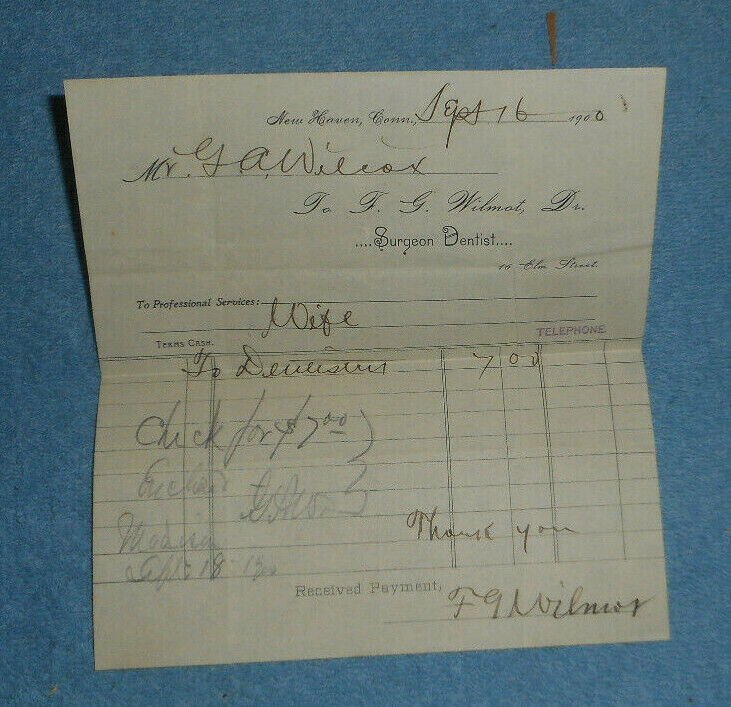 New Haven, Conn., Sept 16 1900
Mr. G. A. Wilcox
To F. G. Wilmot, Dr.
....Surgeon Dentist....
16 Elm Street.
To Professional Services:
Wife
TELEPHONE
TERMS CASH.
To 7 00
Check for $7.00
Madison
Sept 18 1900
Thank you
Received Payment,
F G Wilmot